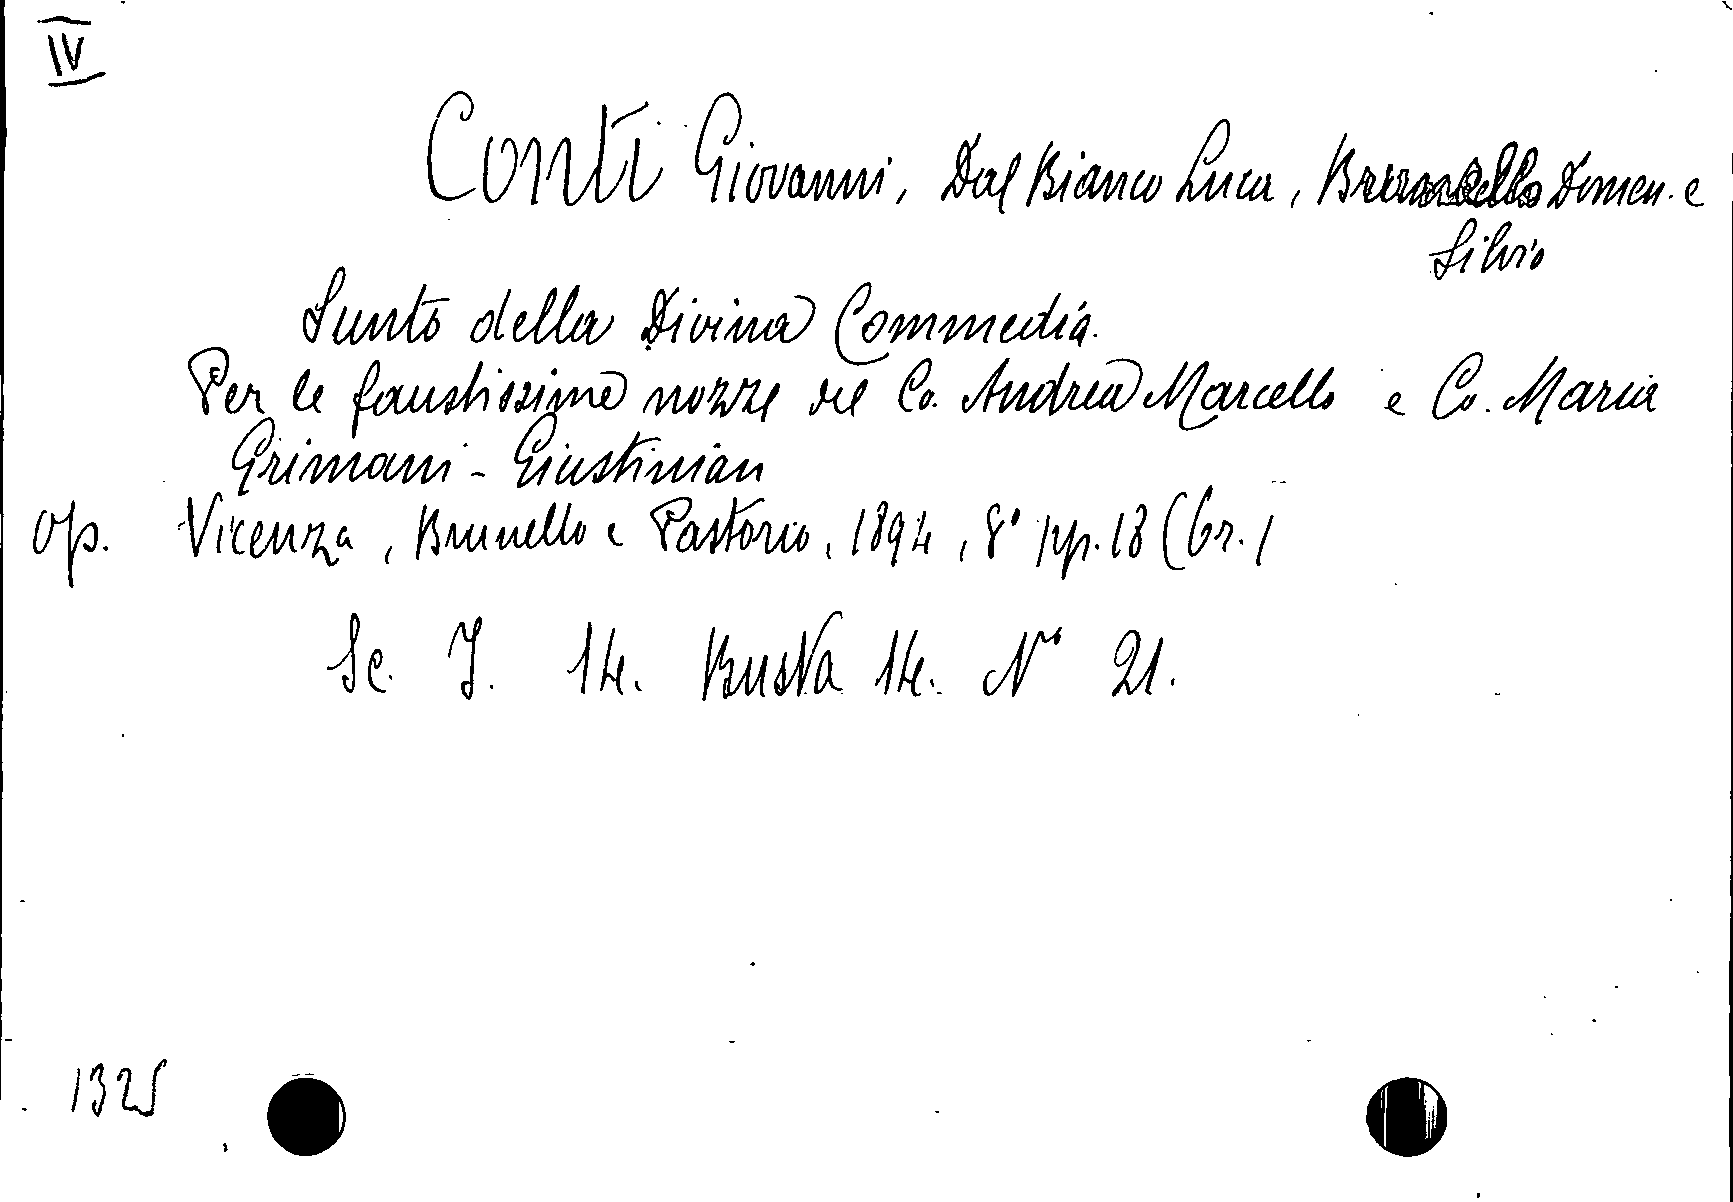 IV
Conti Giovanni, Dal Bianco Luca, Brunello Domen. e
Silvio
Sunto della Divina Commedia.
Per le faustissime nozze del Co. Andrea Marcello e Co. Maria
Grimani - Giustinian
op. Vicenza, Brunello e Pastorio, 1894, 8° pp. 18 (br.)
Sc. I. 14. Busta 14. N° 21.
1325